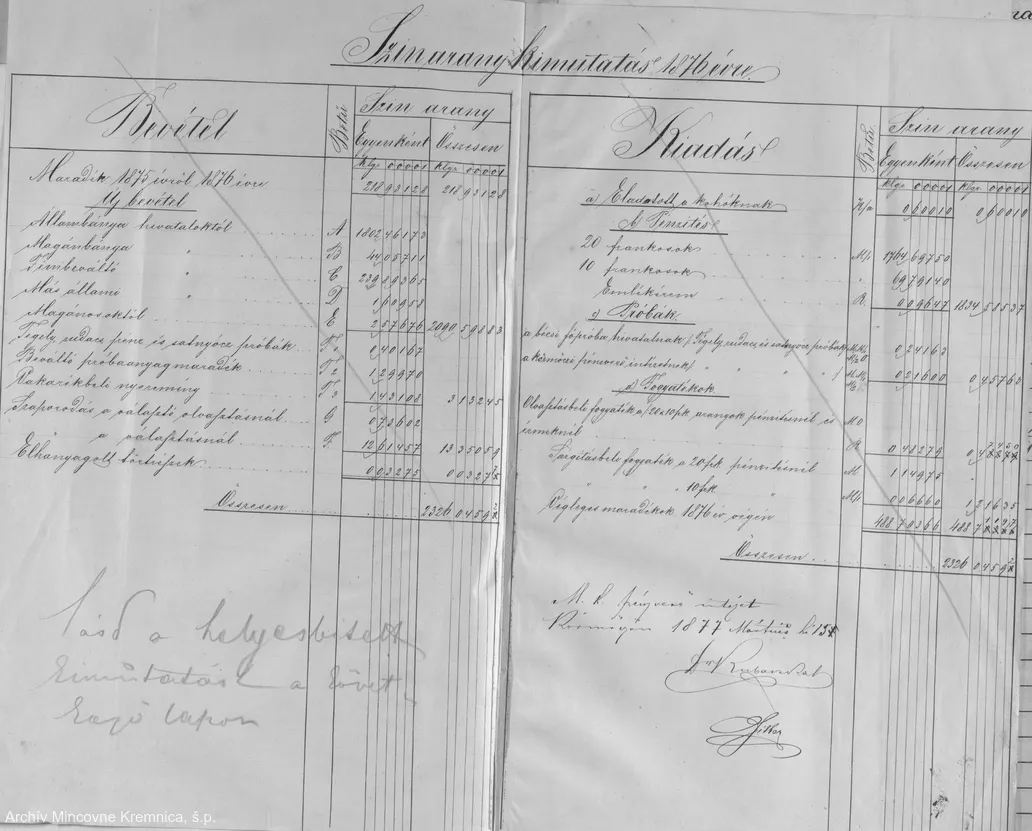 Szinarany kimutatás 1876 évre
Bevétel
Betű
Szin arany
Egyenként Összesen
Klgr 00001 Klgr 00001
Maradék 1875 évről 1876 évre 218 93128 218 93128
Uj bevétel
Állambánya hivataloktól A 1802 46173
Magánbánya " B 44 05711
Fémbeváltó " C 239 89365
Más állami D 1 60958
Magánosoktól E 2 57676 2090 59883
Tégely, rudacs pénz és satnyócz próbák F1 0 40167
Beváltó próbaanyagmaradék F2 1 29970
Pakarékbeli nyeremény F3 1 43108 3 13245
Szaporodás a választó olvasztásnál G 0 73602
a választásnál F. 12 61457 13 35059
Elhanyagolt törtrészek 0 03275 0 0327
Összesen 2326 0459
Kiadás
Betűk
Szin arany
Egyenként Összesen
Klgr 00001 Klgr 00001
a) Eladatott a kohóknak K/a 0 60010 0 60010
b) Pénzités
20 frankosok M/1 1764 69750
10 frankosok " 69 79140
Emlékérem R. 0 09647 1834 58537
c) Próbák
a bécsi főpróba hivatalnak / Tégely, rudacs és satnyócz próbák 0 24163
a körmöczi pénzverő intézetnek / " " " / 0 21600 0 45763
d) Fogyatékok
Olvasztásbeli fogyaték a 20 és 10 fk aranyok pénzitésénél és M0
érmeknél R 0 48279
Sárgitásbeli fogyaték a 20 fk pénzitésnél M 1 14975
" " " 10 fk " M/1 0 06660 1 21635
Végleges maradékok 1876 év végén 488 70366
Összesen 2326 0459
M. k. pénzverő intézet
Körmöczön 1877 Mártius hó 15
Lásd a helyesbitett
kimutatást a követ-
kező lapon
Archív Mincovne Kremnica, š.p.